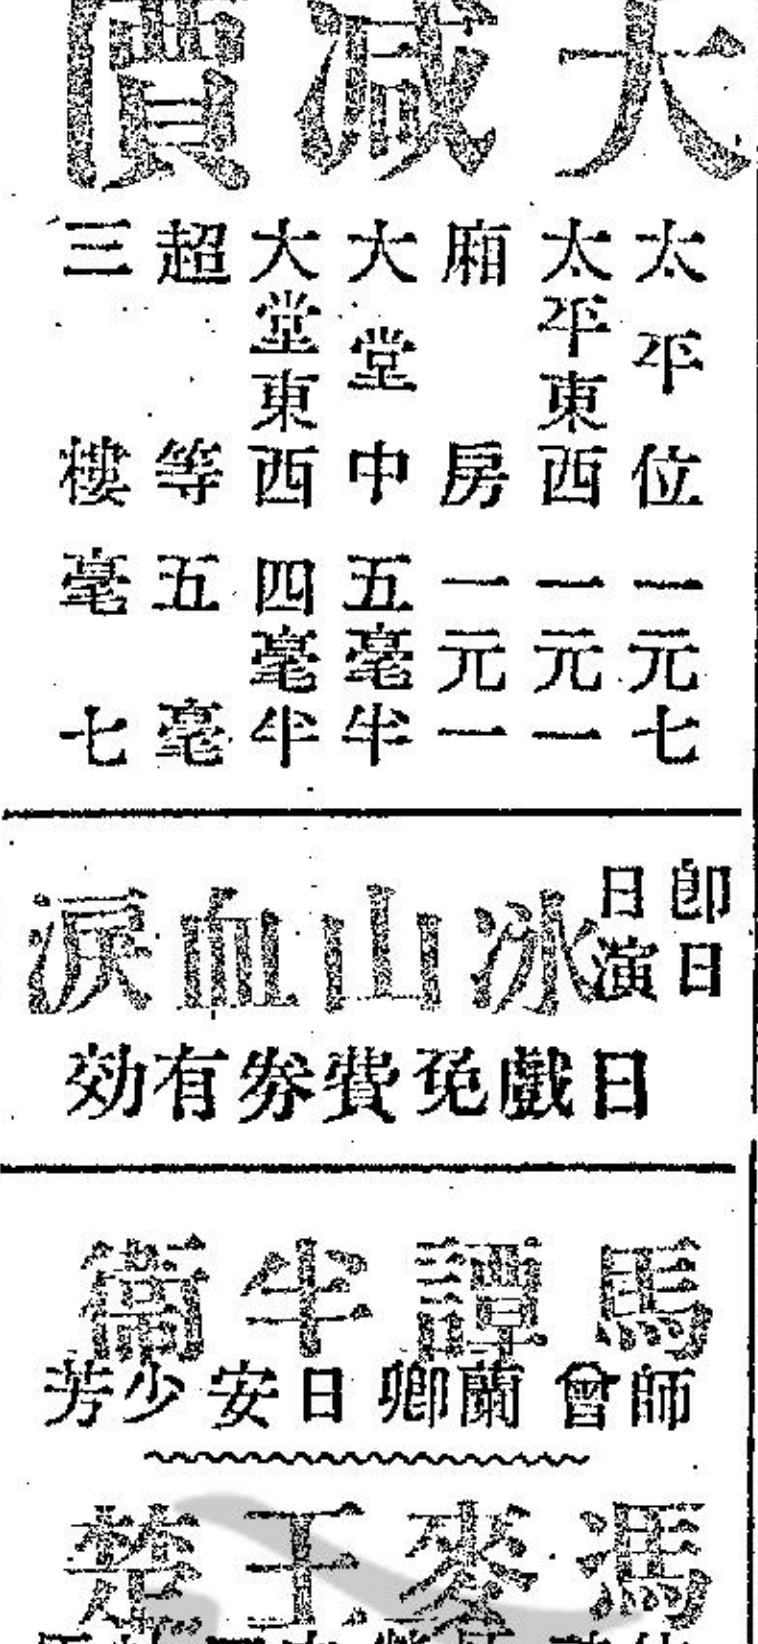 大減價
太平位一元七
太平東西一元一
廂房一元一
大堂中五毫半
大堂東西四毫半
超等五毫
三樓毫七
即日
日演
冰山血淚
日戲免費券有効
馬 譚 半 衛
師曾 蘭卿 日安 少芳
馮 麥 王 楚